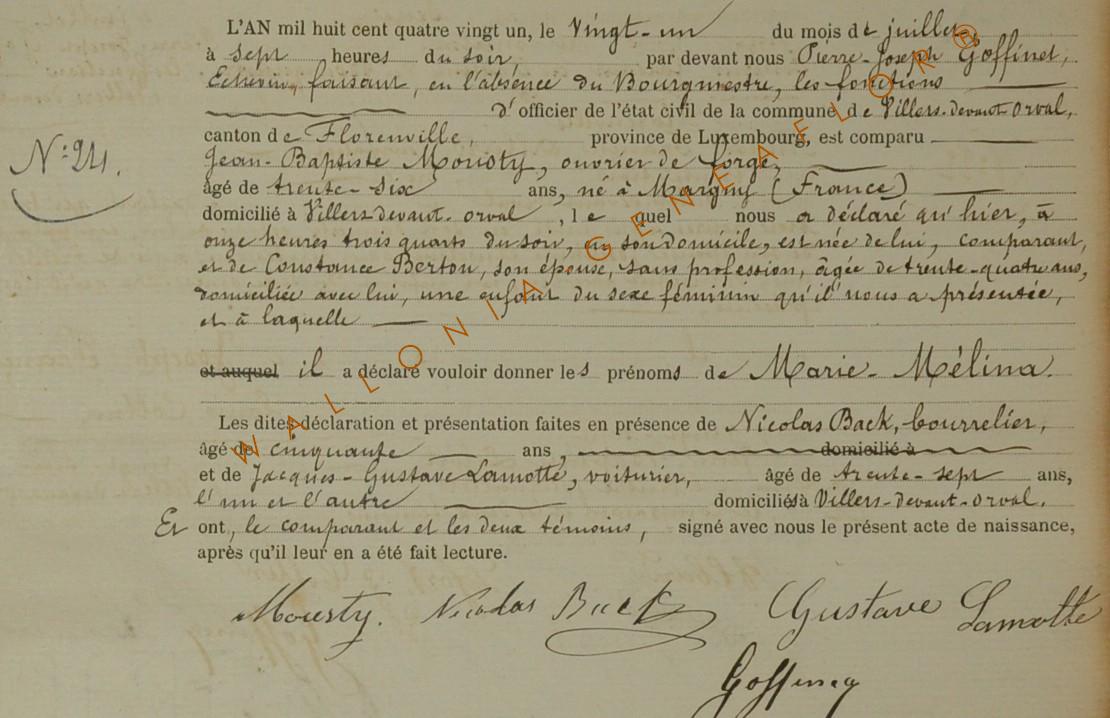 L'AN mil huit cent quatre vingt un, le Vingt-un du mois de juillet,
à sept heures du soir, par devant nous Pierre-Joseph Goffinet,
Echevin, faisant, en l'absence du Bourgmestre, les fonctions
d'officier de l'état civil de la commune de Villers-devant-Orval,
canton de Florenville, province de Luxembourg, est comparu
N° 24.
Jean-Baptiste Mousty, ouvrier de forge,
âgé de trente-six ans, né à Margny (France)
domicilié à Villers-devant-orval, lequel nous a déclaré qu'hier, à
onze heures trois quarts du soir, en son domicile, est née de lui, comparant,
et de Constance Berton, son épouse, sans profession, âgée de trente-quatre ans,
domiciliée avec lui, une enfant du sexe féminin qu'il nous a présentée,
et à laquelle
et auquel il a déclaré vouloir donner les prénoms de Marie-Mélina.
Les dites déclaration et présentation faites en présence de Nicolas Back, bourrelier,
âgé de cinquante ans, domicilié à
et de Jacques-Gustave Lamotte, voiturier, âgé de trente-sept ans,
l'un et l'autre domiciliés à Villers-devant-orval.
Et ont, le comparant et les deux témoins, signé avec nous le présent acte de naissance,
après qu'il leur en a été fait lecture.
Mousty. Nicolas Back Gustave Lamotte
WALLONIA GENEAFLOR®